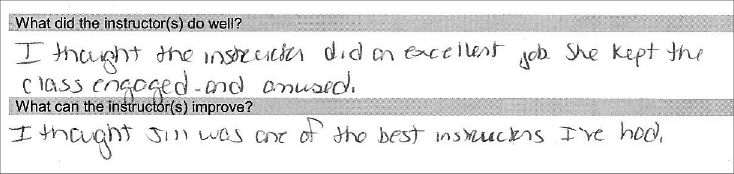 What did the instructor(s) do well?
I thought the instructor did an excellent job She kept the
class engaged and amused.
What can the instructor(s) improve?
I thought Jill was one of the best instructors I've had.